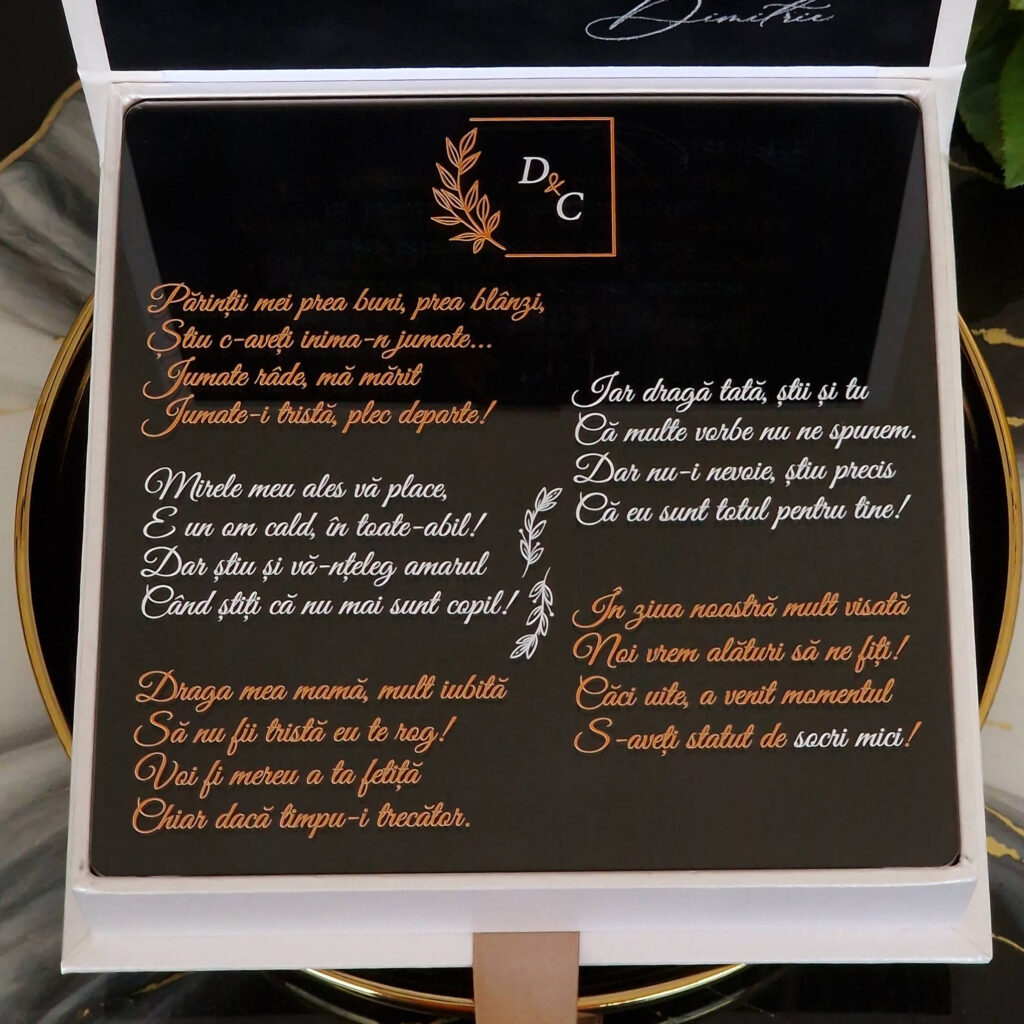 Dimitrie
D&C
Părinții mei prea buni, prea blânzi,
Știu c-aveți inima-n jumate...
Jumate râde, mă mărit
Jumate-i tristă, plec departe!
Mirele meu ales vă place,
E un om cald, în toate-abil!
Dar știu și vă-nțeleg amarul
Când știți că nu mai sunt copil!
Draga mea mamă, mult iubită
Să nu fii tristă eu te rog!
Voi fi mereu a ta fetiță
Chiar dacă timpu-i trecător.
Iar dragă tată, știi și tu
Că multe vorbe nu ne spunem.
Dar nu-i nevoie, știu precis
Că eu sunt totul pentru tine!
În ziua noastră mult visată
Noi vrem alături să ne fiți!
Căci uite, a venit momentul
S-aveți statut de socri mici!